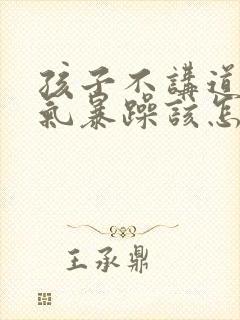 孩子不講道
氣暴躁該怎
王承鼎